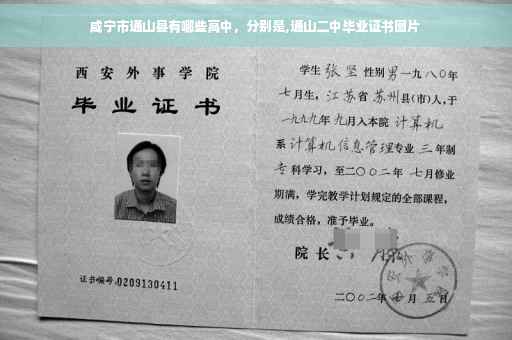 咸宁市通山县有哪些高中，分别是,通山二中毕业证书图片
西安外事学院
毕业证书
证书编号:0209130411
学生张坚性别男一九八〇年
七月生，江苏省苏州县(市)人,于
一九九九年九月入本院计算机
系计算机信息管理专业三年制
专科学习，至二〇〇二年七月修业
期满，学完教学计划规定的全部课程，
成绩合格，准予毕业。
院长
二〇〇二年 月五日